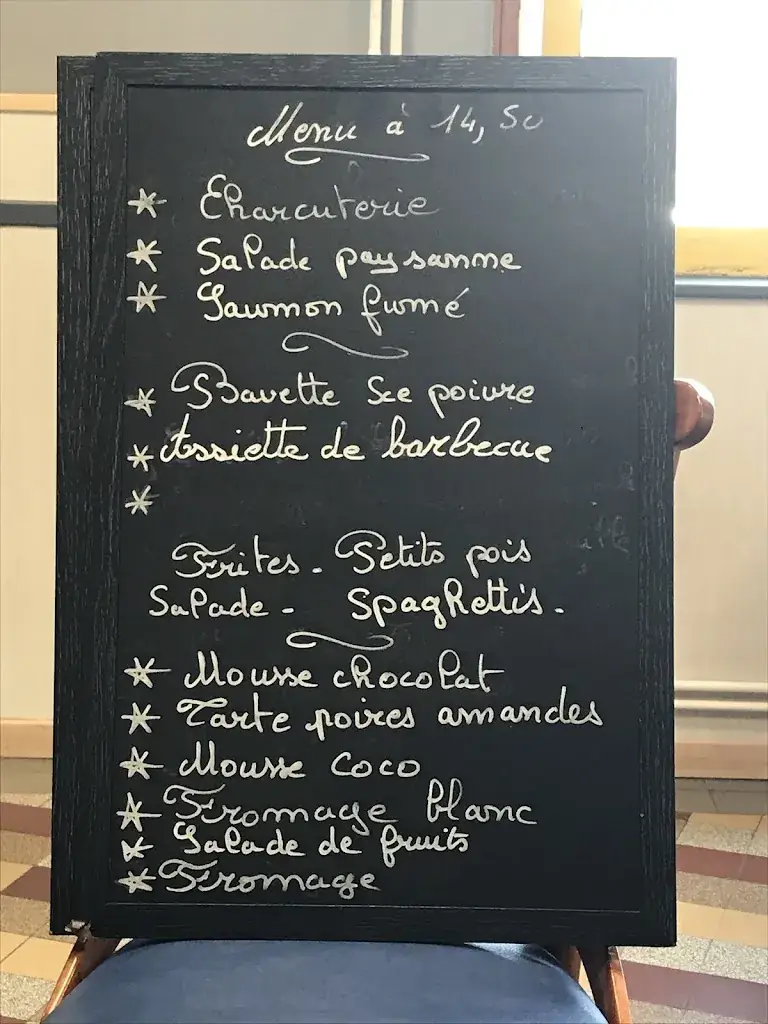 Menu à 14,50
* Charcuterie
* Salade paysanne
* Saumon fumé
* Bavette Sce poivre
* Assiette de barbecue
*
Frites - Petits pois
Salade - Spaghettis -
* Mousse chocolat
* Tarte poires amandes
* Mousse coco
* Fromage blanc
* Salade de fruits
* Fromage